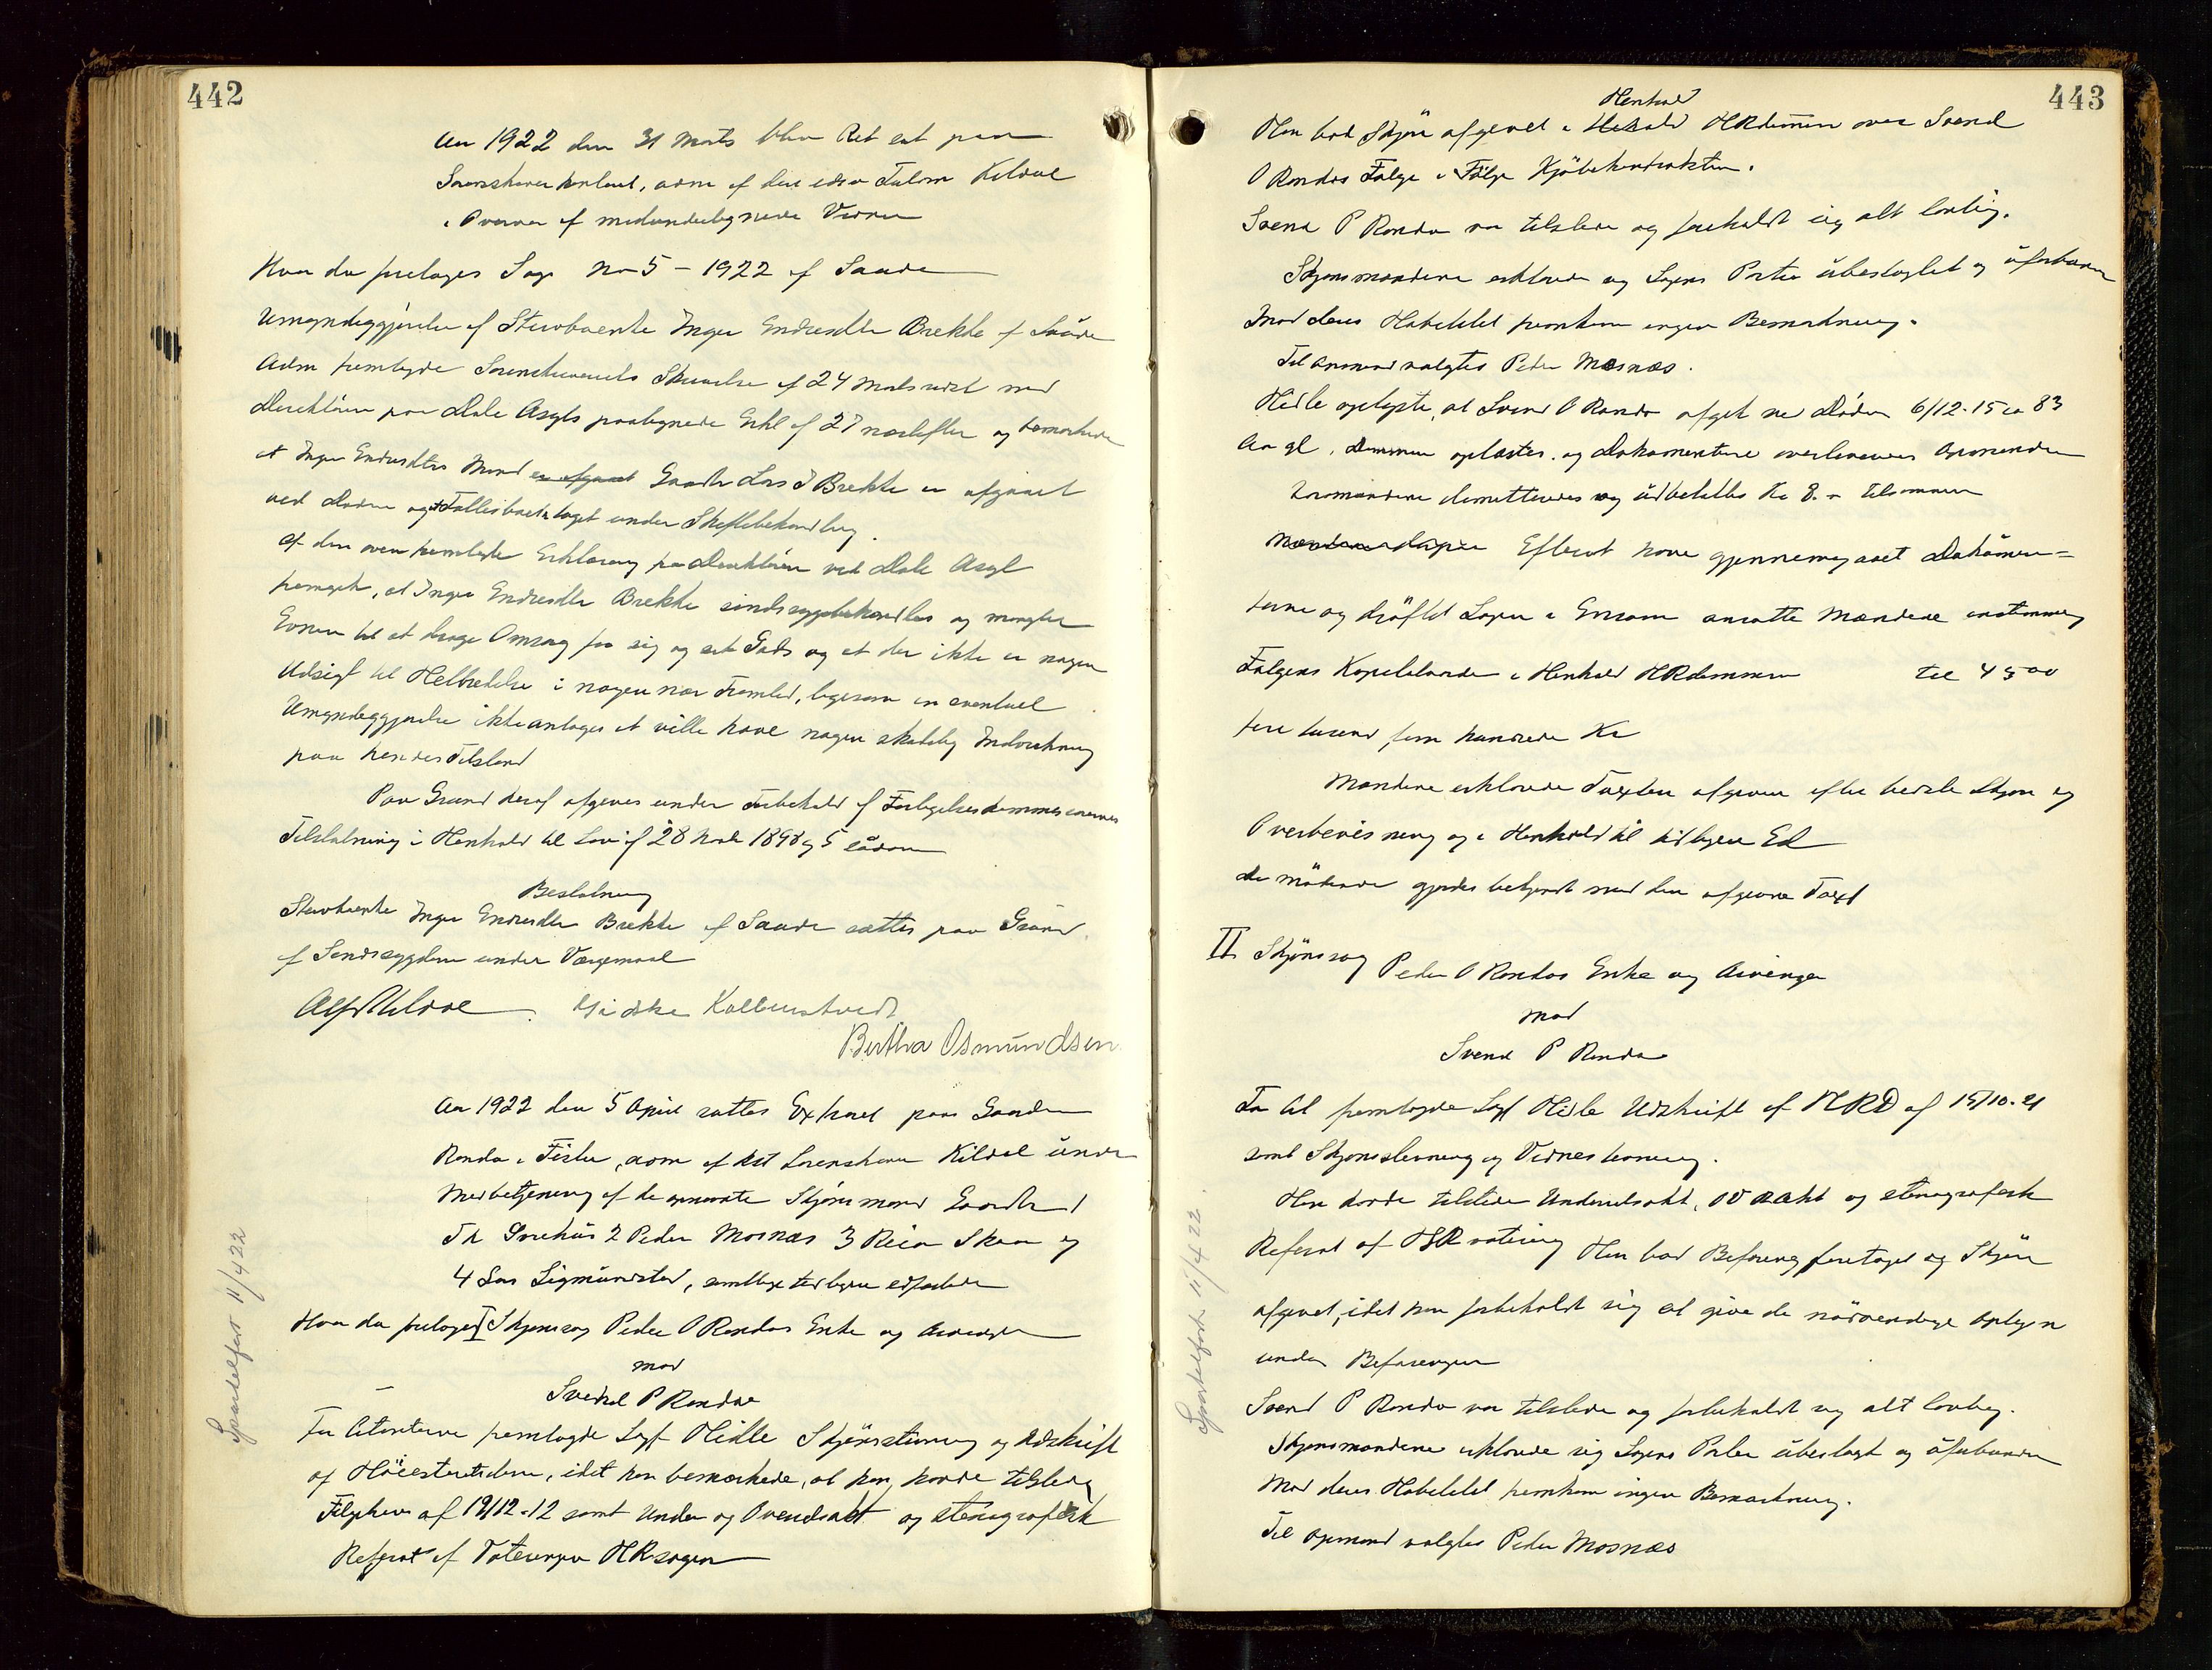 442
Aar 1922 den 31 Marts blev Ret sat paa
Sorenskriverkontoret, adm af den edsv Fuldm Kildal
i Overvær af medundertegnede Vidner
Hvor da foretoges Sag No 5 - 1922 af Saude
Umyndiggjørelse af Stervboenke Inger Endresdtr Brekke af Saude
Adm fremlagde Sorenskriverens Skrivelse af 24 Marts sidst med
Direktøren paa Dale Asyls paategnede Erkl af 27 næstefter og bemærkede
at Inger Endresdtrs Mand er afgaaet Gaardbr Lars I Brekke er afgaaet
ved Døden og Fællesboet taget under Skiftebehandling.
Af den oven fremlagte Erklæring fra Direktøren ved Dale Asyl
fremgik, at Inger Endresdtr Brekke sindssygebehandles og mangler
Evnen til at drage Omsorg for sig og sit Gods og at der ikke er nogen
Udsigt til Helbredelse i nogen nær Fremtid, ligesom en eventuel
Umyndiggjørelse ikke antages at ville have nogen skadelig Indvirkning
paa hendes Tilstand
Paa Grund deraf afgives under Forbehold af Forligelseskommissærernes
Tilslutning i Henhold til Lov af 28 Novbr 1898 § 5 saadan
Beslutning
Stervboenke Inger Endresdtr Brekke af Saude sættes paa Grund
af Sindssygdom under Værgemaal
Alf Kildal Giske Kolbeinstvedt
Bertha Osmundsen
Aar 1922 den 5 April sattes Extraret paa Gaarden
Randa i Fister, adm af kst Sorenskriver Kildal under
Medbetjening af de opnævnte Skjønsmænd Gaardbr 1
Th Grrehus 2 Peder Mosnæs 3 Reier Skaar og
4 Lars Sigmundstad, samtlige tidligere edfæstede
Hvor da foretoges I Skjønssag Peder O Randas Enke og Arvinger
mod
Svend P Randa
For Citanterne fremlagde Sagf Hidle Skjønsstevning og Udskrift
af Höiesteretsdom, idet han bemærkede, at han havde tilstede
Følgebrev af 19/12-12 samt Under og Overretsakt og stenografisk
Referat af Voteringen HRsagen
Sportelfort 11/4 22
443
Han bad Skjøn afgivet i Hehold Henhold HRdommen over Svend
O Randas Følge i Følge Kjöbekontrakten.
Svend P Randa var tilstede og forbeholdt sig alt lovlig.
Skjønsmændene erklærede sig Sagens Parter ubeslægtet og uforbunden
Mod deres Habelitet fremkom ingen Bemærkning.
Til Opmand valgtes Peder Mosnæs.
Hidle oplyste, at Svend O Randa afgik ved Döden 6/12-15 ca 83
Aar gl. Dommen oplæstes og Dokumenterne overleveres Opmanden
Lavmændene dimitteredes og udbetaltes Kr 8.- tilsammen
Efterat have gjennemgaaet Dokumen=
terne og dröftet Sagen i Enrum ansatte Mændene enstemmig
Følgens Kapitalværdi i Henhold HRdommen til 4500
fire tusend fem hundrede Kr
Mændene erklærede Taxten afgiven efter bedste Skjøn og
Overbevisning og i Henhold til tidligere Ed
De mötende gjordes bekjendt med den afgivne Taxt
II Skjönssag Peder O Randas Enke og Arvinger
mod
Svend P Randa
For Cit fremlagde Sagf Hidle Udskrift af HRD af 15/10-21
samt Skjønsstevning og Vidnestevning.
Han havde tilstede Underretsakt, OV RAkt og stenografisk
Referat af HR votering Han bad Befaring foretaget og Skjön
afgivet, idet han forbeholdt sig at give de nödvendige Oplysn
under Befaringen
Svend P Randa var tilstede og forbeholdt sig alt lovlig.
Skjønsmændene erklærede sig Sagens Parter ubeslægt og uforbunden
Mod deres Habelitet fremkom ingen Bemærkning.
Til Opmand valgtes Peder Mosnæs
Sportelfort 11/4 22.